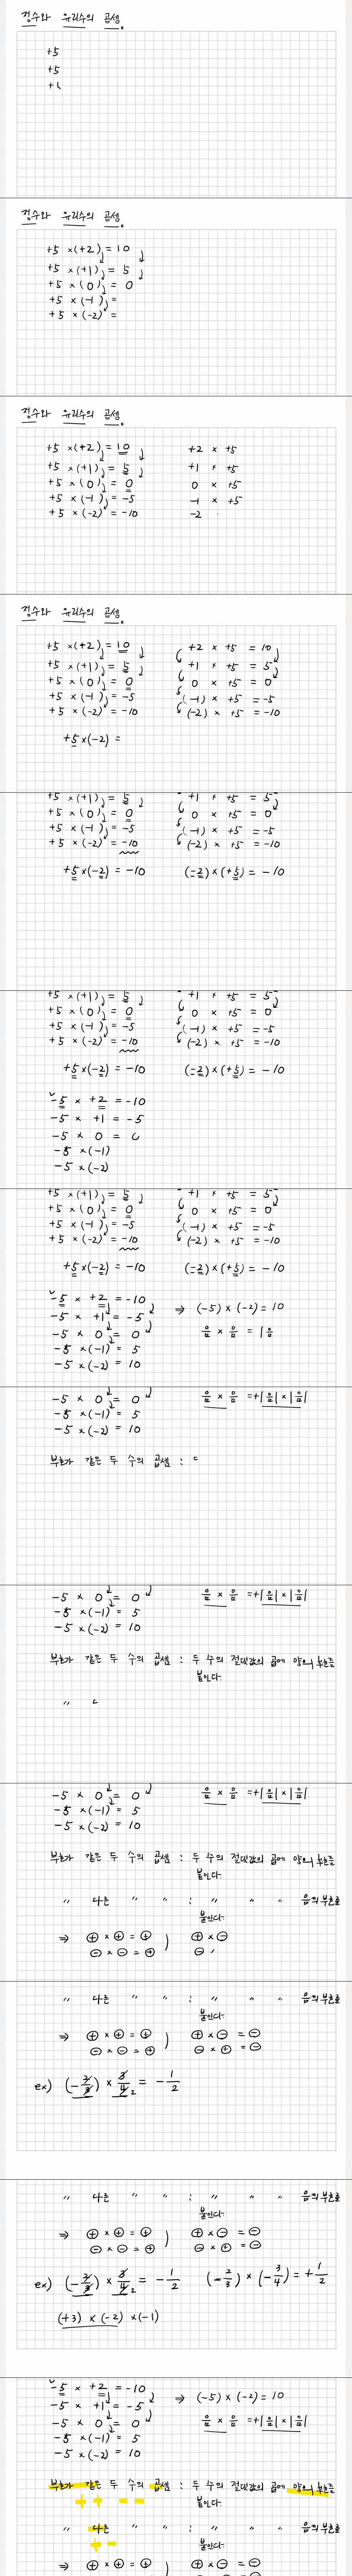 정수와 유리수의 곱셈.
+5
+5
+
정수와 유리수의 곱셈.
+5 ×(+2) = 10
+5 ×(+1) = 5
+5 ×( 0 ) = 0
+5 ×(-1) =
+5 ×(-2) =
정수와 유리수의 곱셈.
+5 ×(+2) = 10 +2 × +5
+5 ×(+1) = 5 +1 × +5
+5 ×( 0 ) = 0 0 × +5
+5 ×(-1) = -5 -1 × +5
+5 ×(-2) = -10 -2
정수와 유리수의 곱셈.
+5 ×(+2) = 10 +2 × +5 = 10
+5 ×(+1) = 5 +1 × +5 = 5
+5 ×( 0 ) = 0 0 × +5 = 0
+5 ×(-1) = -5 (-1) × +5 = -5
+5 ×(-2) = -10 (-2) × +5 = -10
+5 ×(-2) =
+5 ×(+1) = 5 +1 × +5 = 5
+5 ×( 0 ) = 0 0 × +5 = 0
+5 ×(-1) = -5 (-1) × +5 = -5
+5 ×(-2) = -10 (-2) × +5 = -10
+5 ×(-2) = -10 (-2)×(+5) = -10
+5 ×(+1) = 5 +1 × +5 = 5
+5 ×( 0 ) = 0 0 × +5 = 0
+5 ×(-1) = -5 (-1) × +5 = -5
+5 ×(-2) = -10 (-2) × +5 = -10
+5 ×(-2) = -10 (-2)×(+5) = -10
-5 × +2 = -10
-5 × +1 = -5
-5 × 0 = 0
-5 ×(-1)
-5 ×(-2)
+5 ×(+1) = 5 +1 × +5 = 5
+5 ×( 0 ) = 0 0 × +5 = 0
+5 ×(-1) = -5 (-1) × +5 = -5
+5 ×(-2) = -10 (-2) × +5 = -10
+5 ×(-2) = -10 (-2)×(+5) = -10
-5 × +2 = -10
-5 × +1 = -5 ⇒ (-5) × (-2) = 10
-5 × 0 = 0 음 × 음 = |음
-5 ×(-1) = 5
-5 ×(-2) = 10
-5 × 0 = 0 음 × 음 = +|음|×|음|
-5 ×(-1) = 5
-5 ×(-2) = 10
부호가 같은 두 수의 곱셈 :
-5 × 0 = 0 음 × 음 = +|음|×|음|
-5 ×(-1) = 5
-5 ×(-2) = 10
부호가 같은 두 수의 곱셈 : 두 수의 절댓값의 곱에 양의 부호를
붙인다.
〃
-5 × 0 = 0 음 × 음 = +|음|×|음|
-5 ×(-1) = 5
-5 ×(-2) = 10
부호가 같은 두 수의 곱셈 : 두 수의 절댓값의 곱에 양의 부호를
붙인다.
〃 다른 〃 〃 : 〃 〃 〃 음의 부호를
붙인다.
⇒ ⊕ × ⊕ = ⊕ ) ⊕ × ⊖
⊖ × ⊖ = ⊕ ⊖
〃 다른 〃 〃 : 〃 〃 〃 음의 부호를
붙인다.
⇒ ⊕ × ⊕ = ⊕ ) ⊕ × ⊖ = ⊖
⊖ × ⊖ = ⊕ ⊖ × ⊕ = ⊖
ex) (-2/3) × 3/4 2 = -1/2
〃 다른 〃 〃 : 〃 〃 〃 음의 부호를
붙인다.
⇒ ⊕ × ⊕ = ⊕ ) ⊕ × ⊖ = ⊖
⊖ × ⊖ = ⊕ ⊖ × ⊕ = ⊖
ex) (-2/3) × 3/4 2 = -1/2 (-2/3) × (-3/4) = +1/2
(+3) × (-2) ×(-1)
-5 × +2 = -10
-5 × +1 = -5 ⇒ (-5) × (-2) = 10
-5 × 0 = 0 음 × 음 = +|음|×|음|
-5 ×(-1) = 5
-5 ×(-2) = 10
부호가 같은 두 수의 곱셈 : 두 수의 절댓값의 곱에 양의 부호를
+ + - - 붙인다.
〃 다른 〃 〃 : 〃 〃 〃 음의 부호를
+ - 붙인다.
⇒ ⊕ × ⊕ = ⊕ ) ⊕ × ⊖ = ⊖